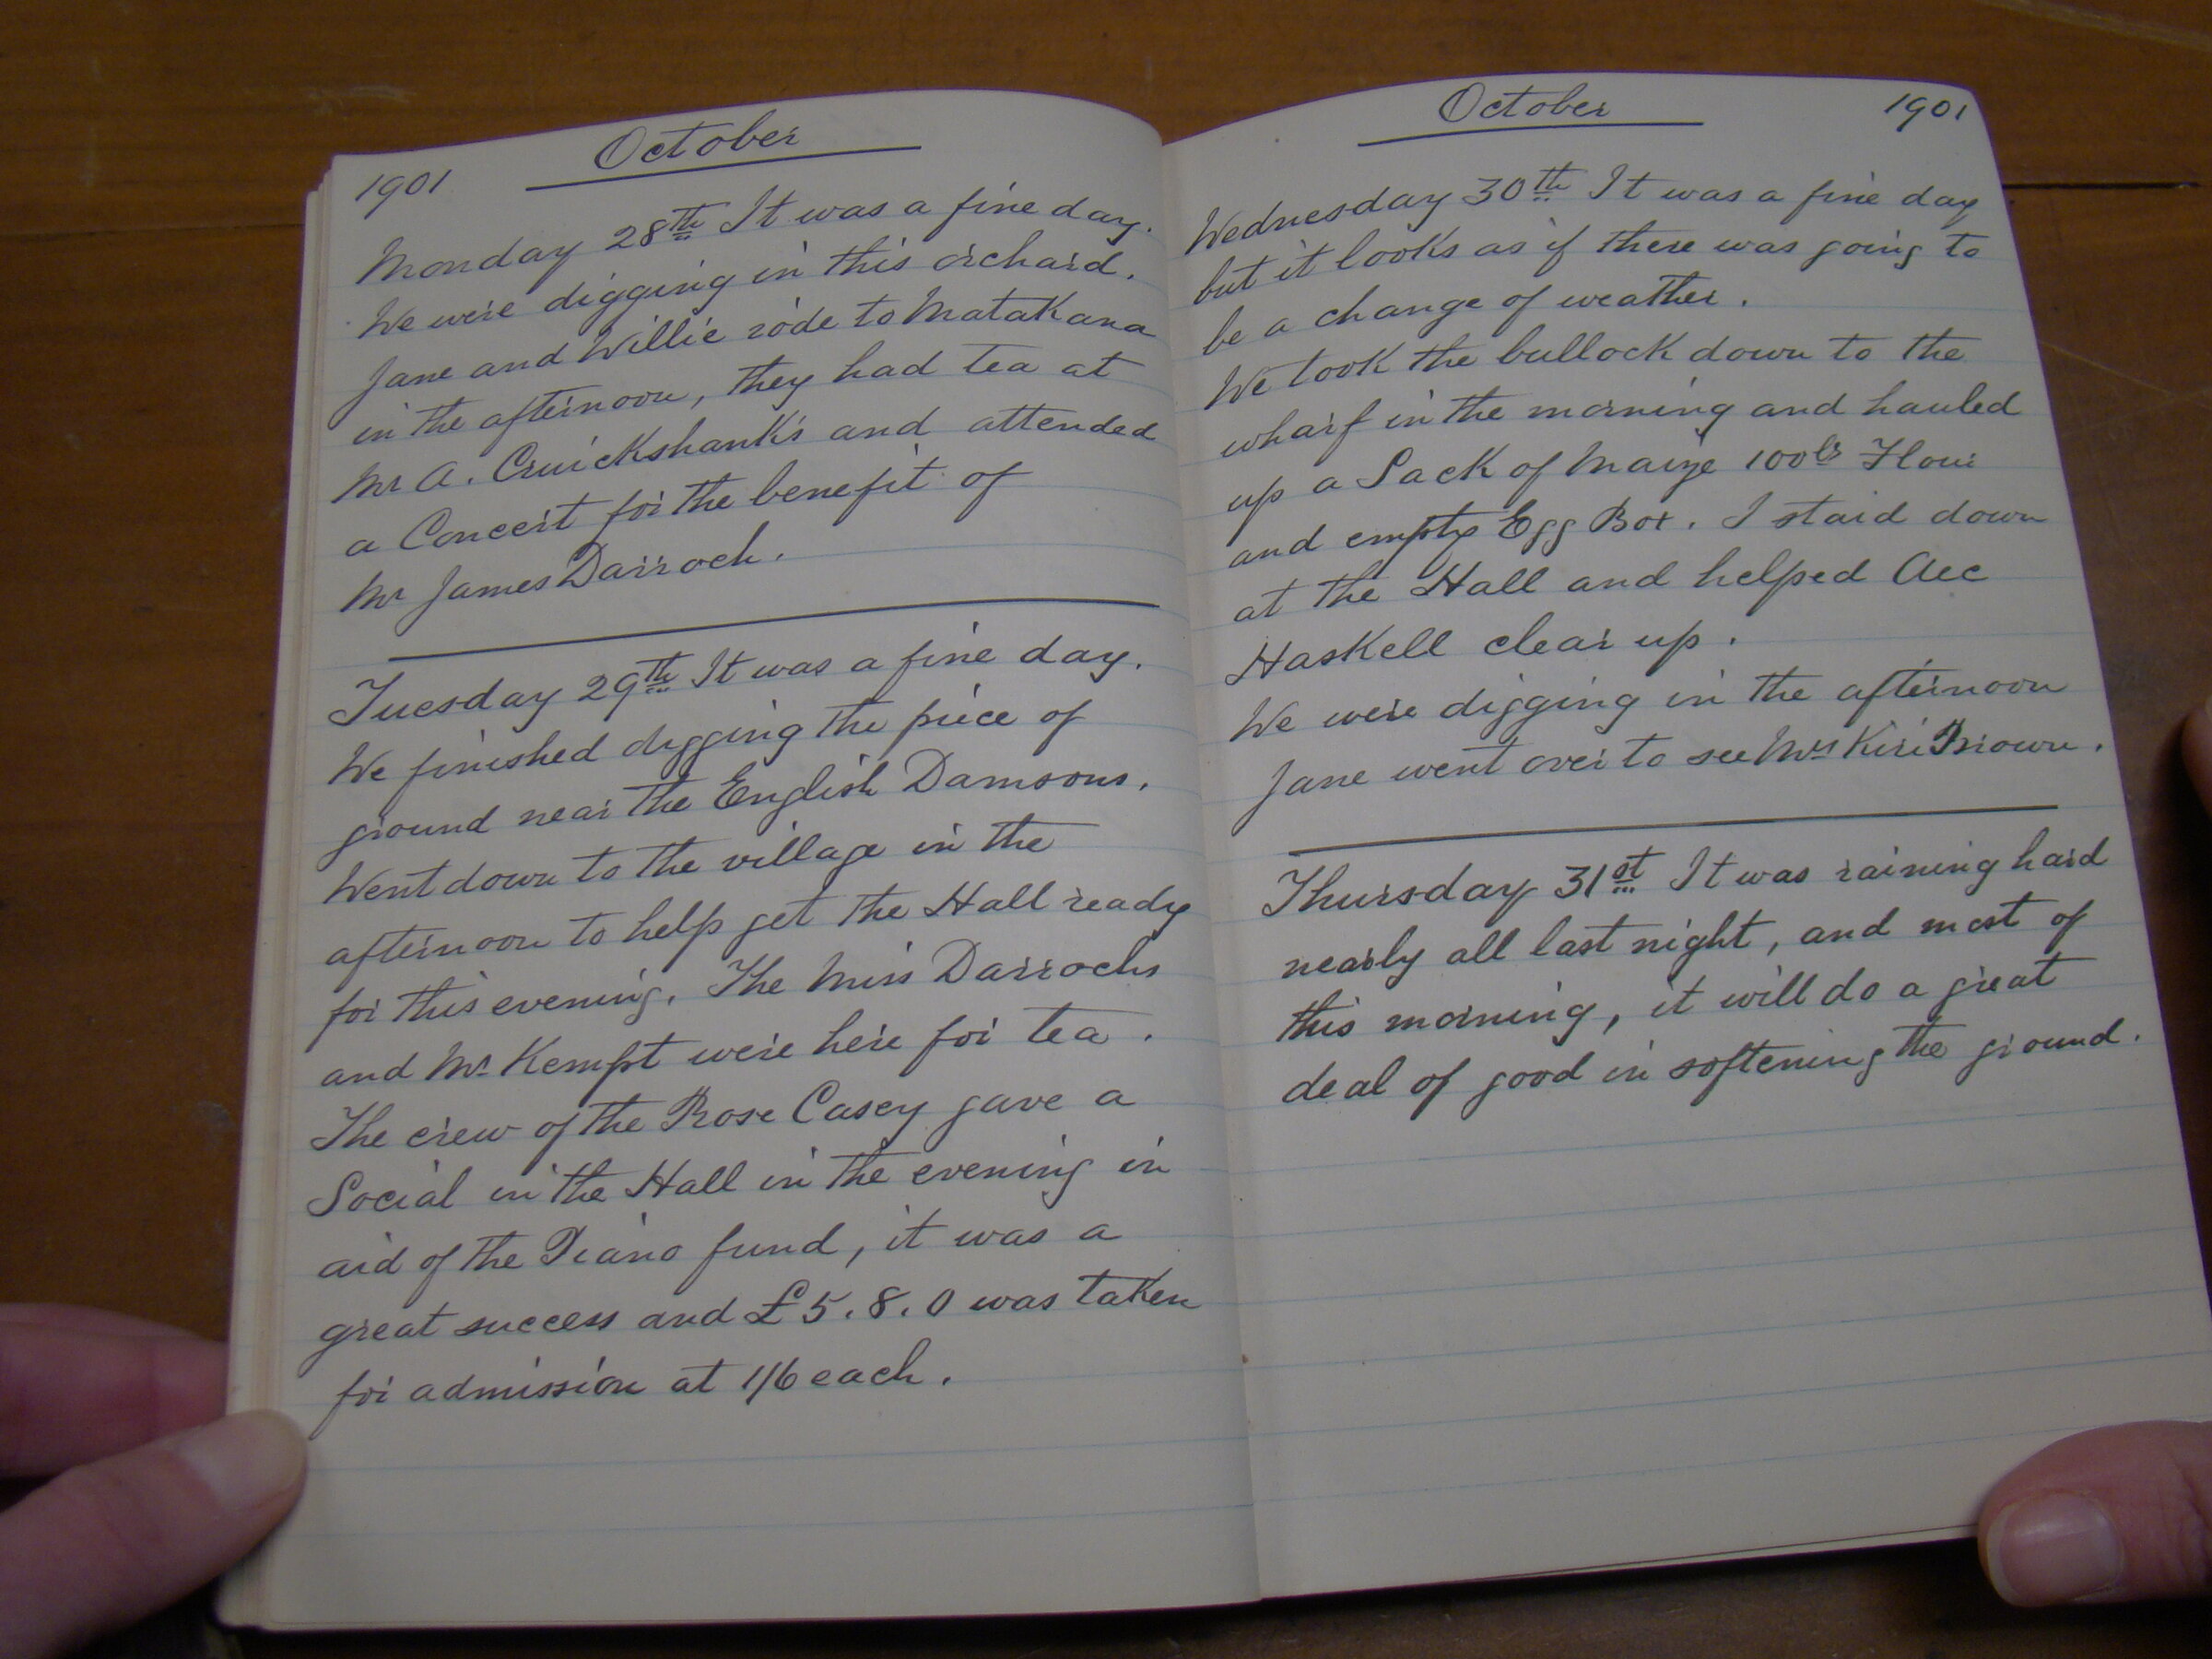 October
1901
Monday 28th It was a fine day.
We were digging in this orchard.
Jane and Willie rode to Matakana
in the afternoon, they had tea at
Mr A. Cruickshank's and attended
a Concert for the benefit of
Mr James Darroch.
Tuesday 29th It was a fine day.
We finished digging the piece of
ground near the English Damsons.
Went down to the village in the
afternoon to help get the Hall ready
for this evening. The Miss Darrochs
and Mr Kempt were here for tea.
The crew of the Rose Casey gave a
Social in the Hall in the evening in
aid of the Piano fund, it was a
great success and £5.8.0 was taken
for admission at 1/6 each.
October
1901
Wednesday 30th It was a fine day
but it looks as if there was going to
be a change of weather.
We took the bullock down to the
wharf in the morning and hauled
up a Sack of Maize 100lb Flour
and empty Egg Box. I staid down
at the Hall and helped
Haskell clear up.
We were digging in the afternoon
Jane went over to see Mrs Kiri Brown.
Thursday 31st It was raining hard
nearly all last night, and most of
this morning, it will do a great
deal of good in softening the ground.